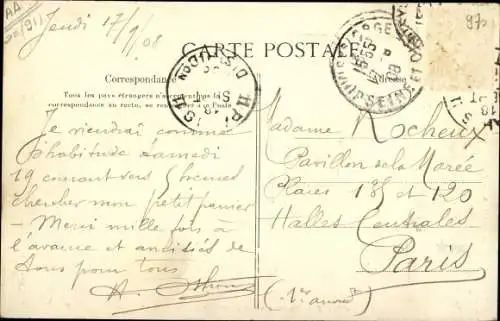 Jeudi 17/9/08
CARTE POSTALE
Correspondance
Tous les pays étrangers n'acceptent pas la
correspondance au recto, se renseigner à la Poste
Je viendrai comme
d'habitude samedi
19 courant vers 5 heures
chercher mon petit panier
- Merci mille fois à
l'avance et amitiés de
tous pour tous
A.
Madame Rocheux
Pavillon de la Marée
Places 118 et 120
Halles Centrales
Paris
(1er arrondt)
970